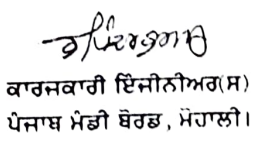 ਕਾਰਜਕਾਰੀ ਇੰਜੀਨੀਅਰ(ਸ)
ਪੰਜਾਬ ਮੰਡੀ ਬੋਰਡ, ਮੋਹਾਲੀ।